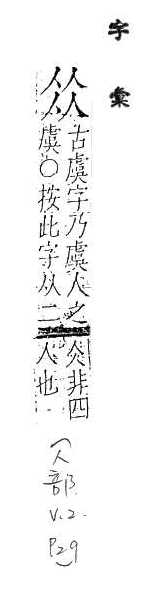 字彙
𠈌
古虞字乃虞人之
虞〇按此字从二
仌非四
人也
(人部 V.2 P29)